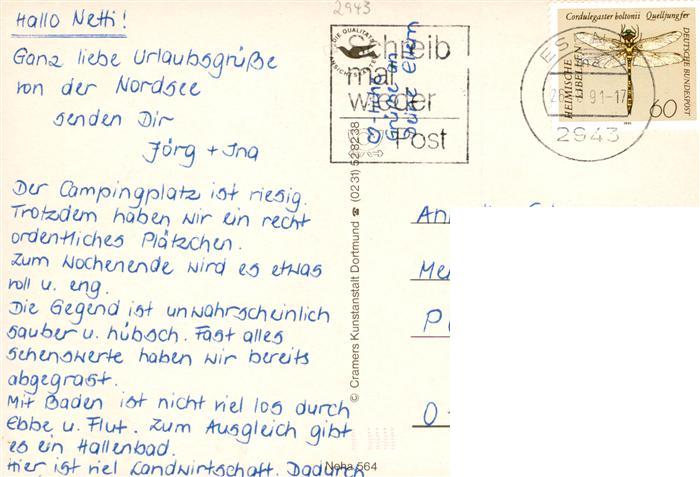 2943
Hallo Netti!
Ganz liebe Urlaubsgrüße
von der Nordsee
senden Dir
Jörg + Ina
Der Campingplatz ist riesig.
Trotzdem haben wir ein recht
ordentliches Plätzchen.
Zum Wochenende wird es etwas
voll u. eng.
Die Gegend ist unwahrscheinlich
sauber u. hübsch. Fast alles
sehenswerte haben wir bereits
abgegrast.
Mit Baden ist nicht viel los durch
Ebbe u. Flut. Zum Ausgleich gibt
es ein Hallenbad.
Hier ist viel Landwirtschaft. Dadurch
Schreib
mal
wieder
Post
Grüße an
Deine Eltern
© Cramers Kunstanstalt Dortmund ☎ (0231) 528238
Noha 564
Cordulegaster boltonii Quelljungfer
HEIMISCHE
LIBELLEN
DEUTSCHE BUNDESPOST
60
91-17
2943
An
Me
P
O